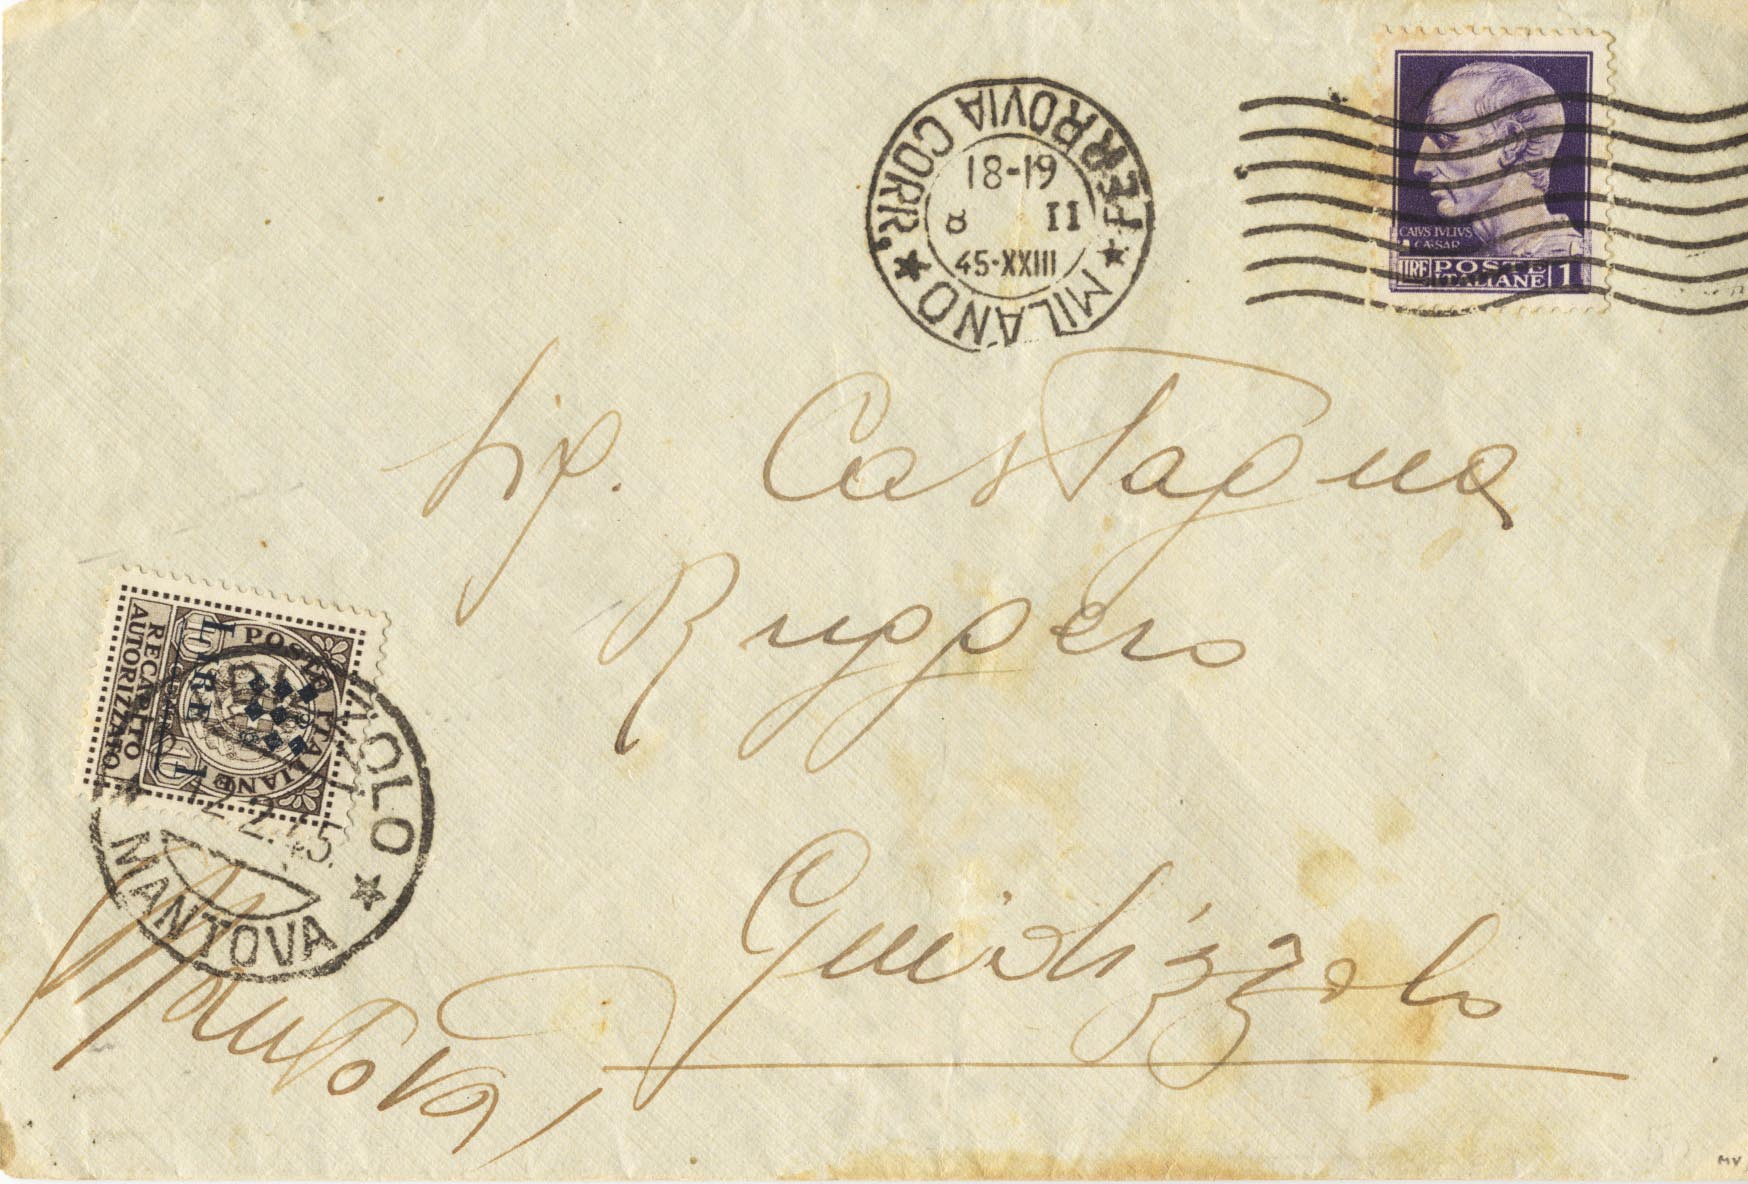 MILANO FERROVIA CORR.
18-19
8 II
45-XXIII
CAIVS IVLIVS
CÆSAR
LIRE POSTE ITALIANE 1
Sig. Castagna
Ruggero
Guidizzolo
Mantova
POSTE ITALIANE
RECAPITO
AUTORIZZATO
LIRE 1
10 10
MANTOVA
2.45